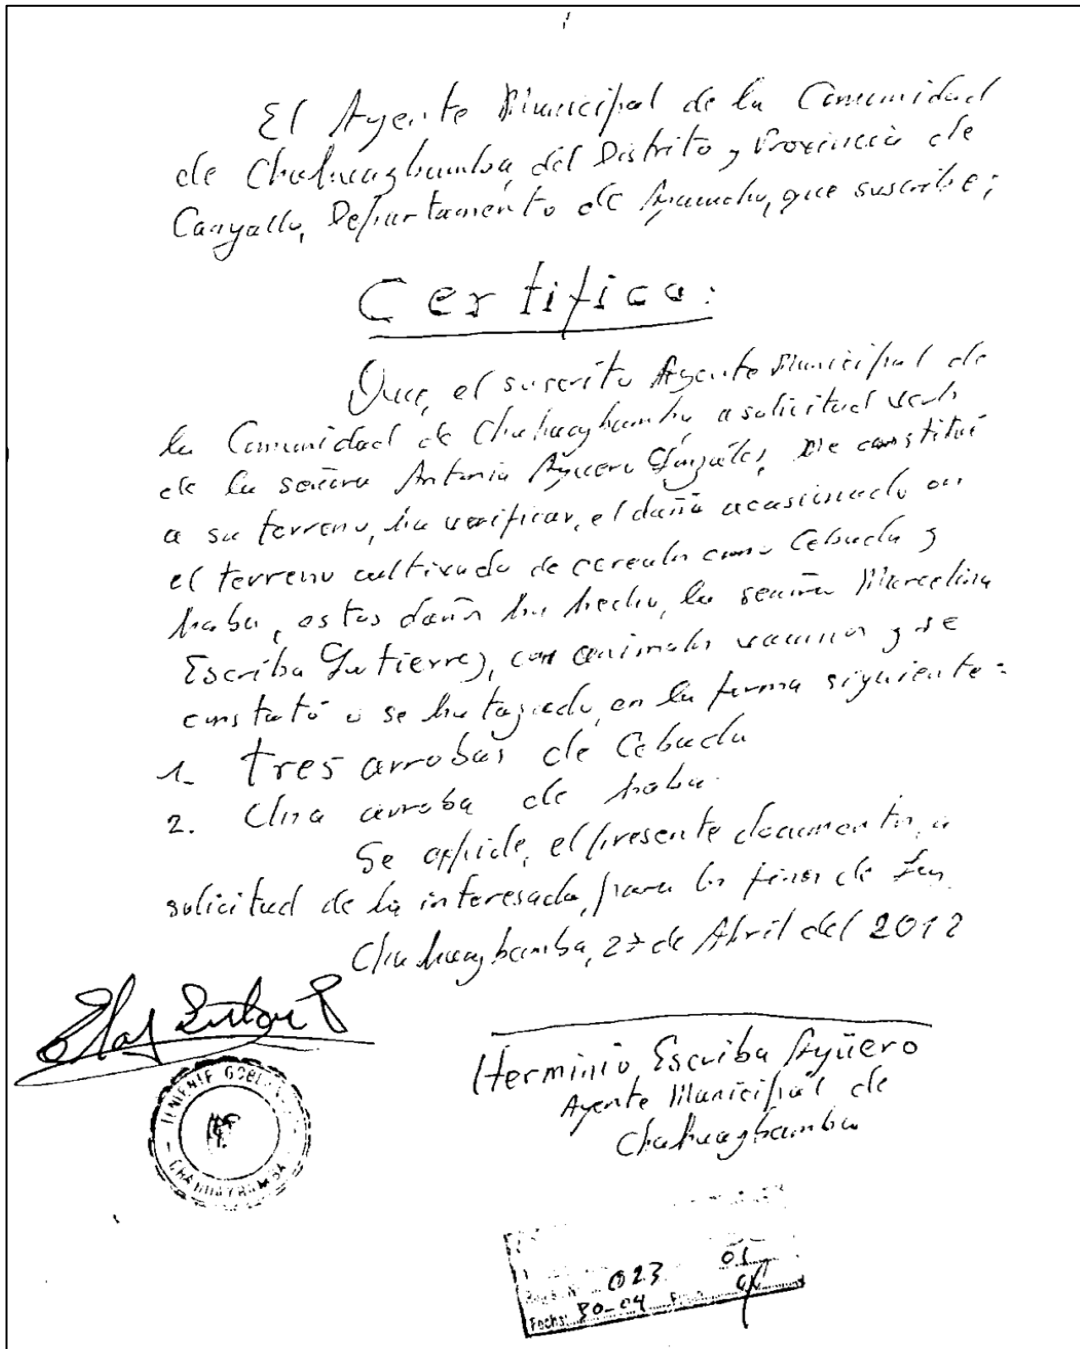 El Agente Municipal de la Comunidad
de Chahuaybamba, del Distrito y Provincia de
Cangallo, Departamento de Ayacucho, que suscribe;
Certifica:
Que, el suscrito Agente Municipal de
la Comunidad de Chahuaybamba a solicitud verb
de la señora Antonia Agüero Gonzáles, Me constituí
a su terreno, ha verificar, el daño acasionado en
el terreno cultivado de cereales como Cebada y
haba, estos daños ha hecho, la señora Marcelina
Escriba Gutierrez, con animales vacunos y se
constató o se ha tazado, en la forma siguiente:
1. tres arrobas de Cebada
2. Una arroba de haba.
Se expide, el presente documento, a
solicitud de la interesada, para los fines de Ley.
Chahuaybamba, 27 de Abril del 2012
Herminio Escriba Agüero
Agente Municipal de
Chahuaybamba
TENIENTE GOBERNADOR
CHAHUAYBAMBA
023 01
Fecha: 30-04